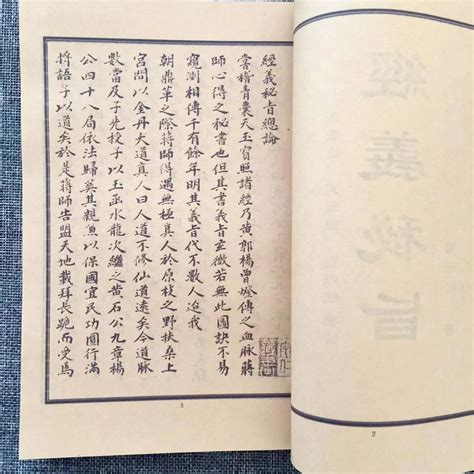 經義秘旨總論
嘗稽青囊天玉寶照諸經乃黃郭楊曾燈傳之血脉蔣
師心得之秘書也但其書義旨玄微若無此圖訣不易
窺測相傳千有餘年明其義旨代不數人迨我
朝鼎革之際蔣師得遇無極真人於原枝之野扶桑上
宮問以金丹大道真人曰人道不修仙道遠矣今道脉
數當及子先授子以玉函水龍次繼之黃石公九章楊
公四十八局依法歸葬其親以保國宜民功圓行滿
將語子以道矣於是蔣師告盟天地載拜長跪而受焉
3
經義秘旨
2